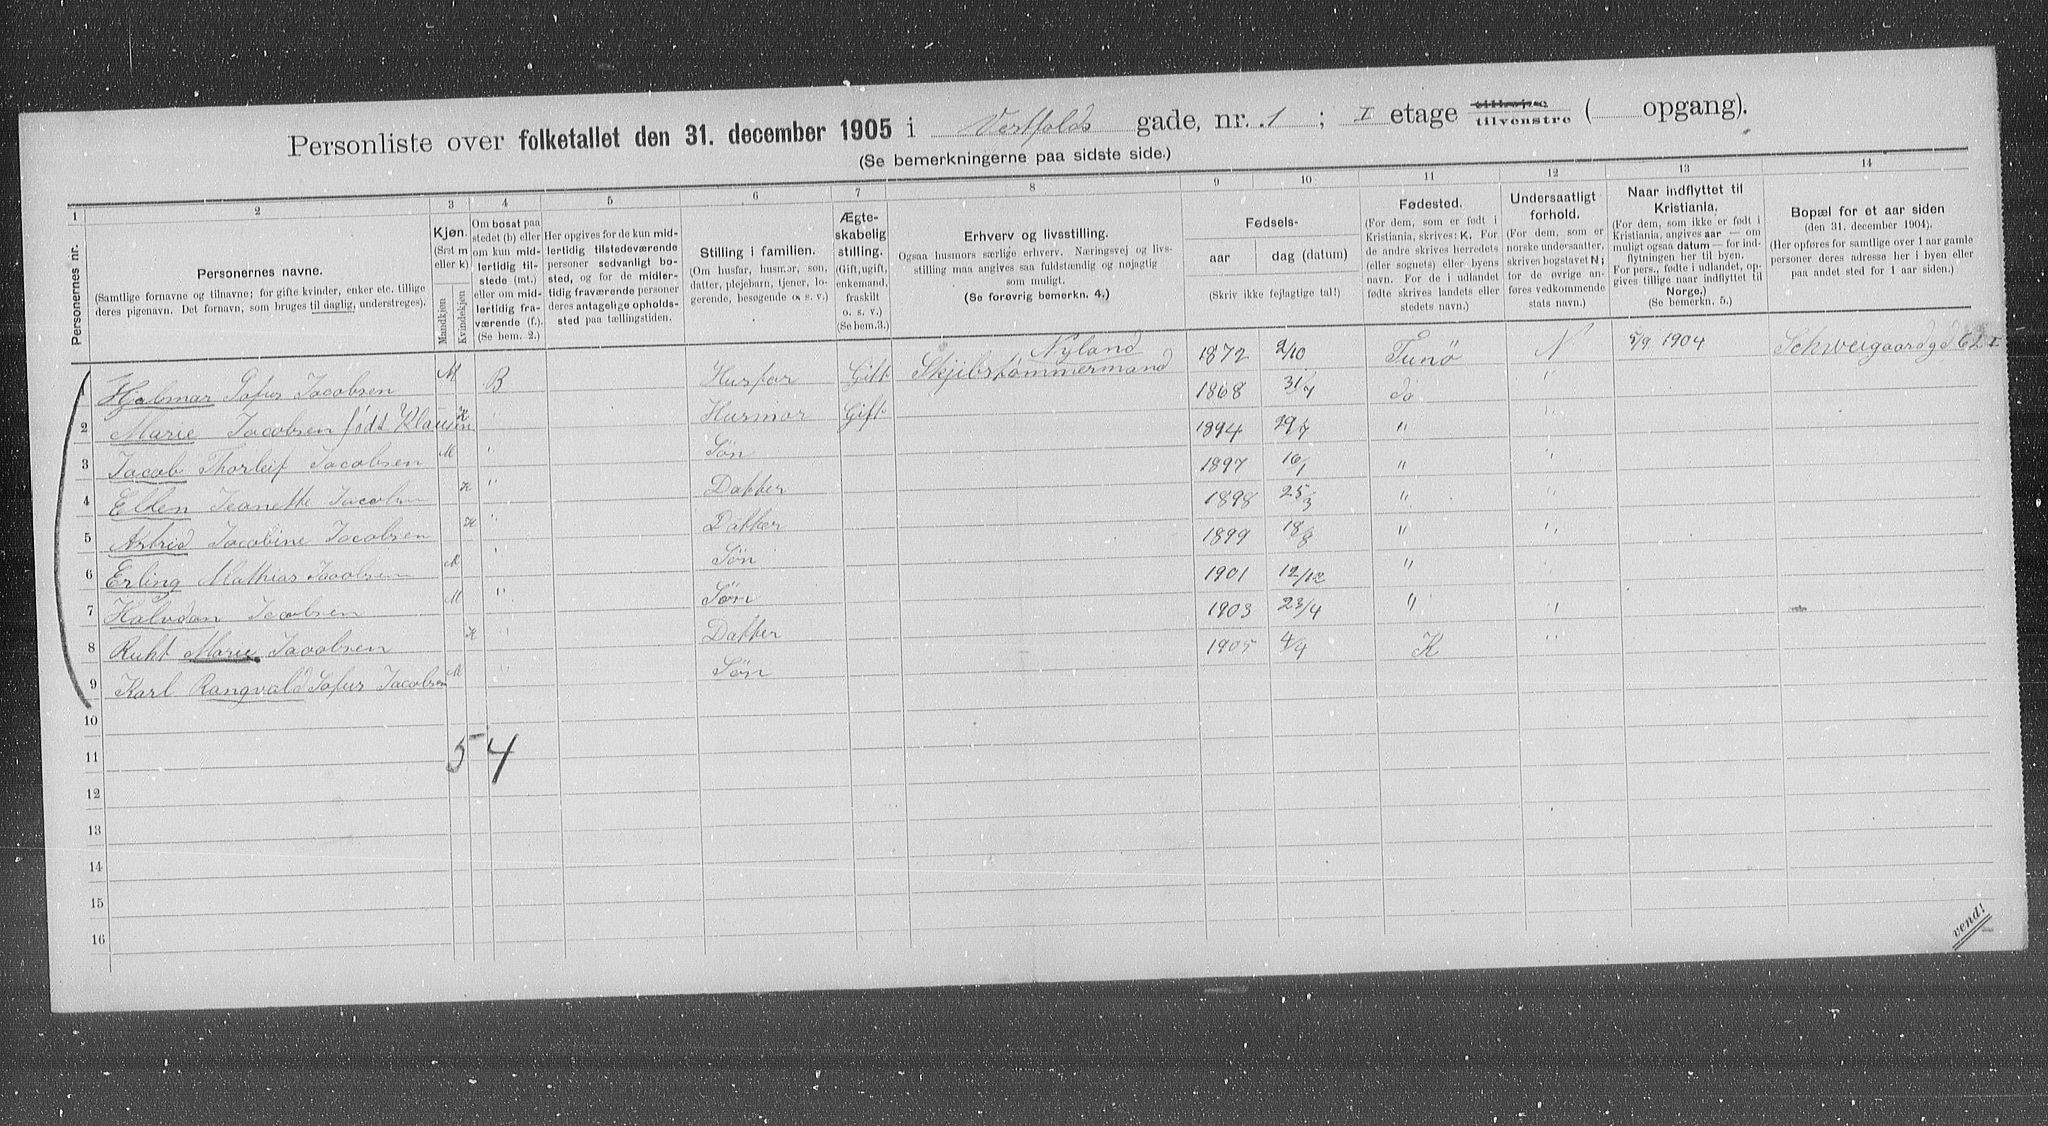 Personliste over folketallet den 31. december 1905 i Vestfolds gade, nr. 1 ; I etage tilhøire tilvenstre ( opgang).
(Se bemerkningerne paa sidste side.)
1 2 3 4 5 6 7 8 9 10 11 12 13 14
Personernes nr.
Personernes navne.
(Samtlige fornavne og tilnavne; for gifte kvinder, enker etc. tillige
deres pigenavn. Det fornavn, som bruges til daglig, understreges).
Kjøn.
(Sæt m
eller k)
Mandkjøn
Kvindekjøn
Om bosat paa
stedet (b) eller
om kun mid-
lertidig til-
stede (mt.)
eller om mid-
lertidig fra-
værende (f.).
(Se bem. 2.)
Her opgives for de kun mid-
lertidig tilstedeværende
personer sedvanligt bo-
sted, og for de midler-
tidig fraværende personer
deres antagelige opholds-
sted paa tællingstiden.
Stilling i familien.
(Om husfar, husmor, søn,
datter, plejebarn, tjener, lo-
gerende, besøgende o. s. v.)
Ægte-
skabelig
stilling.
(Gift, ugift,
enkemand,
fraskilt
o. s. v.)
(Se bem.3.)
Erhverv og livsstilling.
Ogsaa husmors særlige erhverv. Næringsvej og livs-
stilling maa angives saa fuldstændig og nøjagtig
som muligt.
(Se forøvrig bemerkn. 4.)
Fødsels-
aar dag (datum)
(Skriv ikke fejlagtige tal!)
Fødested.
(For dem, som er født i
Kristiania, skrives: K. For
de andre skrives herredets
(eller sognets) eller byens
navn. For de i udlandet
fødte skrives landets eller
stedets navn.)
Undersaatligt
forhold.
(For dem, som er
norske undersaatter,
skrives bogstavet N;
for de øvrige an-
føres vedkommende
stats navn.)
Naar indflyttet til
Kristiania.
(For dem, som ikke er født i
Kristiania, angives aar — om
muligt ogsaa datum — for ind-
flytningen her til byen.
For pers., fødte i udlandet, op-
gives tillige naar indflyttet til
Norge.)
(Se bemerkn. 5.)
Bopæl for et aar siden
(den 31. december 1904).
(Her opføres for samtlige over 1 aar gamle
personer deres adresse her i byen eller
paa andet sted for 1 aar siden.)
Nyland
1 Hjalmar Sofus Jacobsen M B Husfar Gift Skjibstømmermand 1872 2/10 Tunø N 5/9 1904 Schweigaardgd 62 I
2 Marie Jacobsen født Klausen K " Husmor Gift 1868 31/7 do "
3 Jacob Thorleif Jacobsen M " Søn 1894 29/7 " "
4 Ellen Jeanette Jacobsen K " Datter 1897 16/1 " "
5 Astrid Jacobine Jacobsen K " Datter 1898 25/3 " "
6 Erling Mathias Jacobsen M " Søn 1899 18/8 " "
7 Halvdan Jacobsen M " Søn 1901 12/12 " "
8 Ruht Marie Jacobsen K " Datter 1903 23/4 " "
9 Karl Rangvald Sofus Jacobsen M " Søn 1905 4/9 K "
10
11 5 4
12
13
14
15
16
vend!